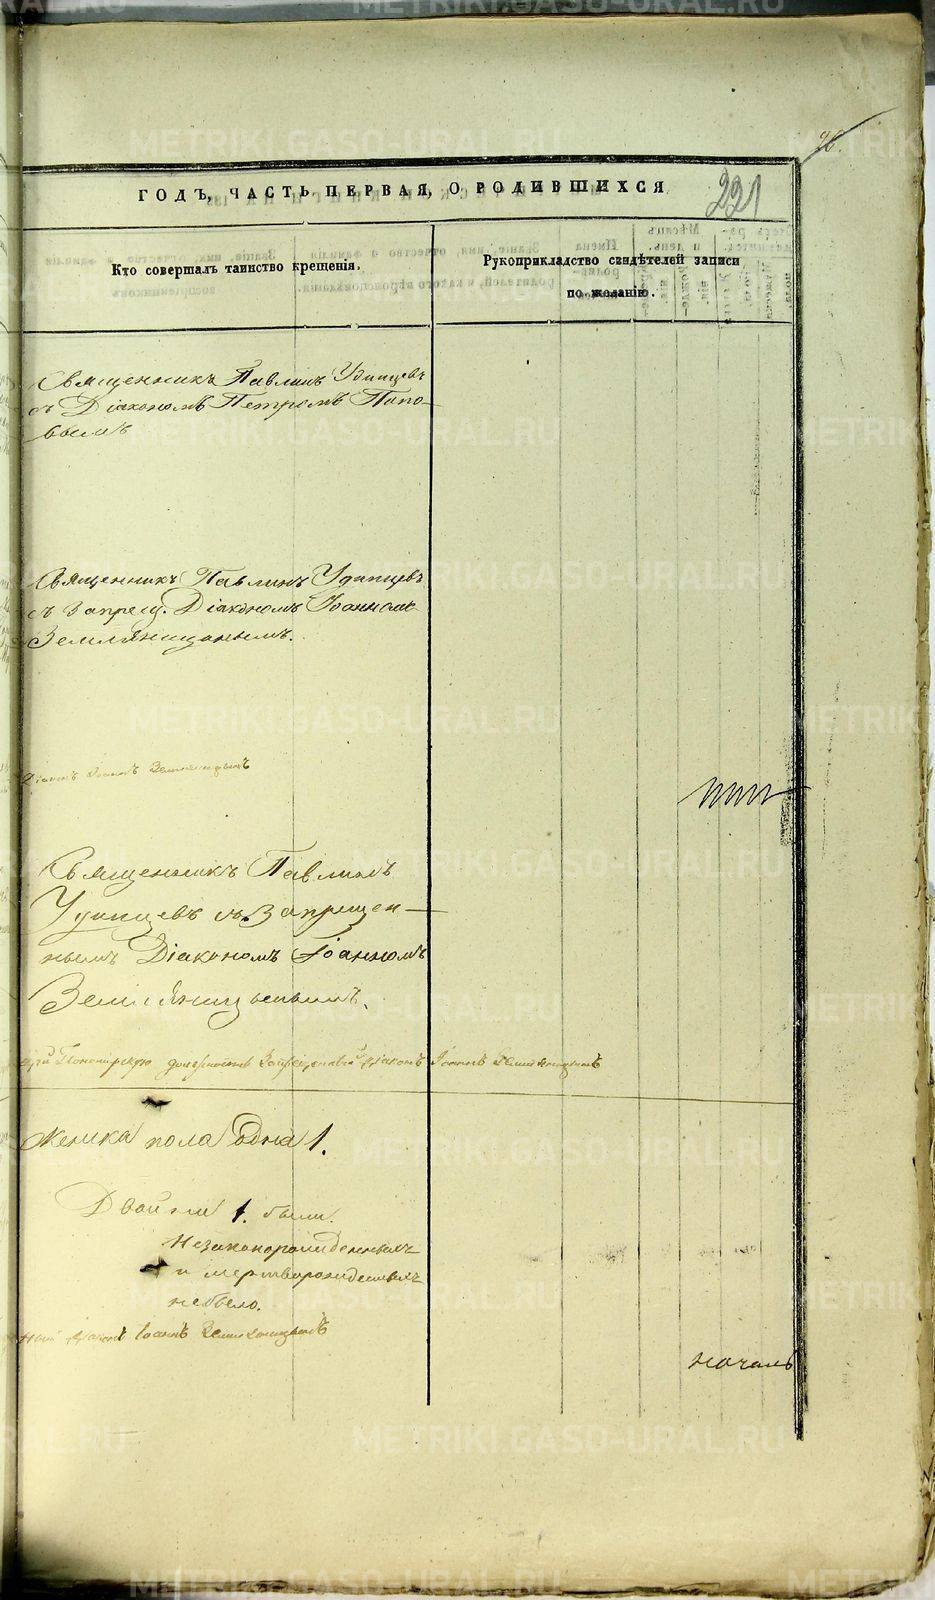 96.
ГОДЪ, ЧАСТЬ ПЕРВАЯ, О РОДИВШИХСЯ
221
Кто совершалъ таинство крещенія.
Рукоприкладство свидѣтелей записи
по желанію.
Священникъ Павлинъ Удинцевъ
съ Діакономъ Петромъ Попо-
вымъ
Священникъ Павлинъ Удинцевъ
съ запрещ. Діакономъ Іоанномъ
Земляницынымъ.
Діаконъ Іоаннъ Земляницынъ
Священникъ Павлинъ
Удинцевъ съ Запрещен-
нымъ Діакономъ Іоанномъ
Земляницынымъ.
должность Запрещенный Діаконъ Іоаннъ Земляницынъ
женска пола одна 1.
Двойни 1. были.
Незаконорожденныхъ
и мертворожденныхъ
небыло.
ный Діаконъ Іоаннъ Земляницынъ
METRIKI.GASO-URAL.RU